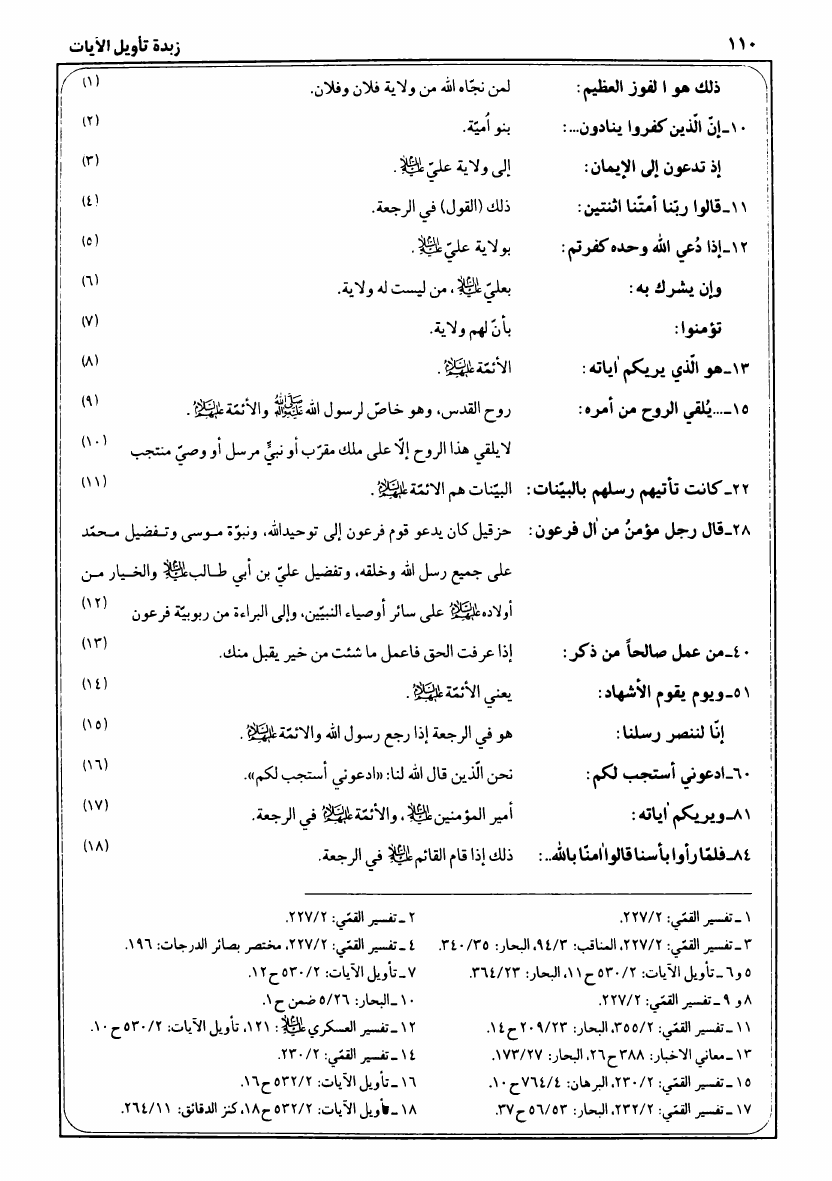 ١١٠ زبدة تأويل الآيات
ذلك هو ا لفوز العظيم: لمن نجّاه الله من ولاية فلان وفلان. (١)
١٠ـ إنّ الّذين كفروا ينادون...: بنو اُميّة. (٢)
إذ تدعون إلى الإيمان: إلى ولاية عليّ عليه السلام. (٣)
١١ـ قالوا ربّنا أمتّنا اثنتين: ذلك (القول) في الرجعة. (٤)
١٢ـ إذا دُعي الله وحده كفرتم: بولاية عليّ عليه السلام. (٥)
وإن يشرك به: بعليّ عليه السلام، من ليست له ولاية. (٦)
تؤمنوا: بأنّ لهم ولاية. (٧)
١٣ـ هو الّذي يريكم اٰياته: الأئمّة عليهم السلام. (٨)
١٥ـ ...يُلقي الروح من أمره: روح القدس، وهو خاصّ لرسول الله ﷺ والأئمّة عليهم السلام. (٩)
لا يلقي هذا الروح إلّا على ملك مقرّب أو نبيٍّ مرسل أو وصيّ منتجب (١٠)
٢٢ـ كانت تأتيهم رسلهم بالبيّنات: البيّنات هم الائمّة عليهم السلام. (١١)
٢٨ـ قال رجل مؤمنٌ من اٰل فرعون: حزقيل كان يدعو قوم فرعون إلى توحيدالله، ونبوّة مـوسى وتـفضيل مـحمّد
على جميع رسل الله وخلقه، وتفضيل عليّ بن أبي طـالب عليه السلام والخـيار مـن
أولاده عليهم السلام على سائر أوصياء النبيّين، وإلى البراءة من ربوبيّة فرعون (١٢)
٤٠ـ من عمل صالحاً من ذكر: إذا عرفت الحق فاعمل ما شئت من خير يقبل منك. (١٣)
٥١ـ ويوم يقوم الأشهاد: يعني الأئمّة عليهم السلام. (١٤)
إنّا لننصر رسلنا: هو في الرجعة إذا رجع رسول الله والائمّة عليهم السلام. (١٥)
٦٠ـ ادعوني أستجب لكم: نحن الّذين قال الله لنا: «ادعوني أستجب لكم». (١٦)
٨١ـ ويريكم اٰياته: أمير المؤمنين عليه السلام، والأئمّة عليهم السلام في الرجعة. (١٧)
٨٤ـ فلمّا رأوا بأسنا قالوا اٰمنّا بالله..: ذلك إذا قام القائم عليه السلام في الرجعة. (١٨)
١ ـ تفسير القمّي: ٢٢٧/٢. ٢ ـ تفسير القمّي: ٢٢٧/٢.
٣ ـ تفسير القمّي: ٢٢٧/٢، المناقب: ٩٤/٣، البحار: ٣٤٠/٣٥. ٤ ـ تفسير القمّي: ٢٢٧/٢، مختصر بصائر الدرجات: ١٩٦.
٥ و٦ ـ تأويل الآيات: ٥٣٠/٢ ح١١، البحار: ٣٦٤/٢٣. ٧ ـ تأويل الآيات: ٥٣٠/٢ ح١٢.
٨ و ٩ ـ تفسير القمّي: ٢٢٧/٢. ١٠ ـ البحار: ٥/٢٦ ضمن ح١.
١١ ـ تفسير القمّي: ٣٥٥/٢، البحار: ٢٠٩/٢٣ ح١٤. ١٢ ـ تفسير العسكري عليه السلام: ١٢١، تأويل الآيات: ٥٣٠/٢ ح١٠.
١٣ ـ معاني الاخبار: ٣٨٨ ح٢٦، البحار: ١٧٣/٢٧. ١٤ ـ تفسير القمّي: ٢٣٠/٢.
١٥ ـ تفسير القمّي: ٢٣٠/٢، البرهان: ٧٦٤/٤ ح١٠. ١٦ ـ تأويل الآيات: ٥٣٢/٢ ح١٦.
١٧ ـ تفسير القمّي: ٢٣٢/٢، البحار: ٥٦/٥٣ ح٣٧. ١٨ ـ تأويل الآيات: ٥٣٢/٢ ح١٨، كنز الدقائق: ٢٦٤/١١.